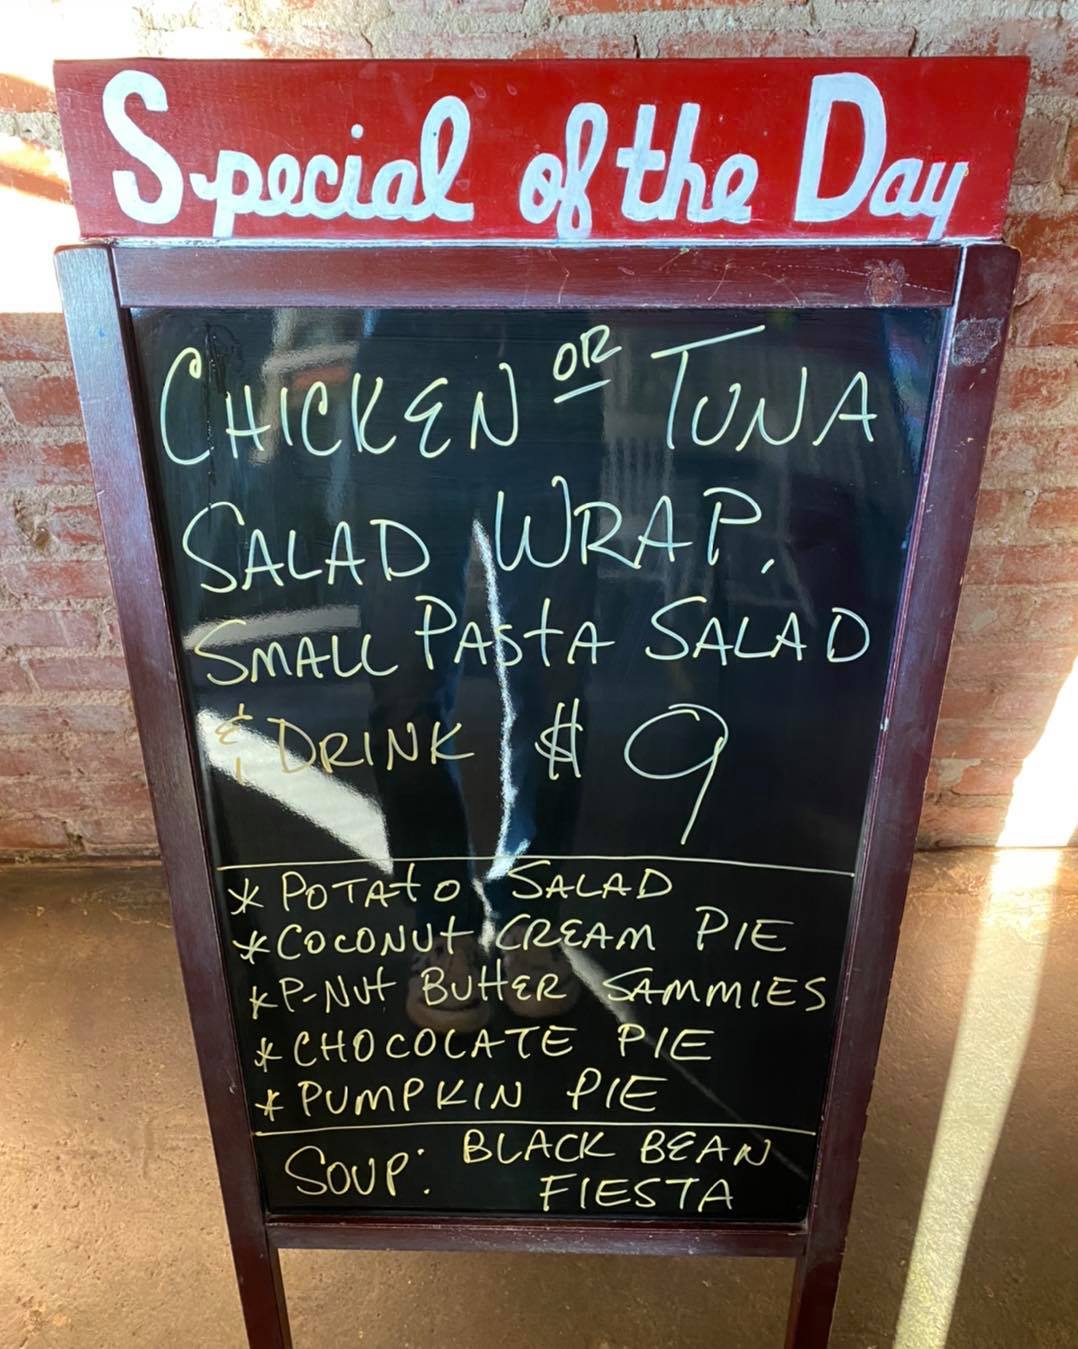 Special of the Day
CHICKEN OR TUNA
SALAD WRAP,
SMALL PASTA SALAD
& DRINK $ 9
* POTATO SALAD
* COCONUT CREAM PIE
* P-NUT BUTTER SAMMIES
* CHOCOLATE PIE
* PUMPKIN PIE
SOUP: BLACK BEAN
FIESTA